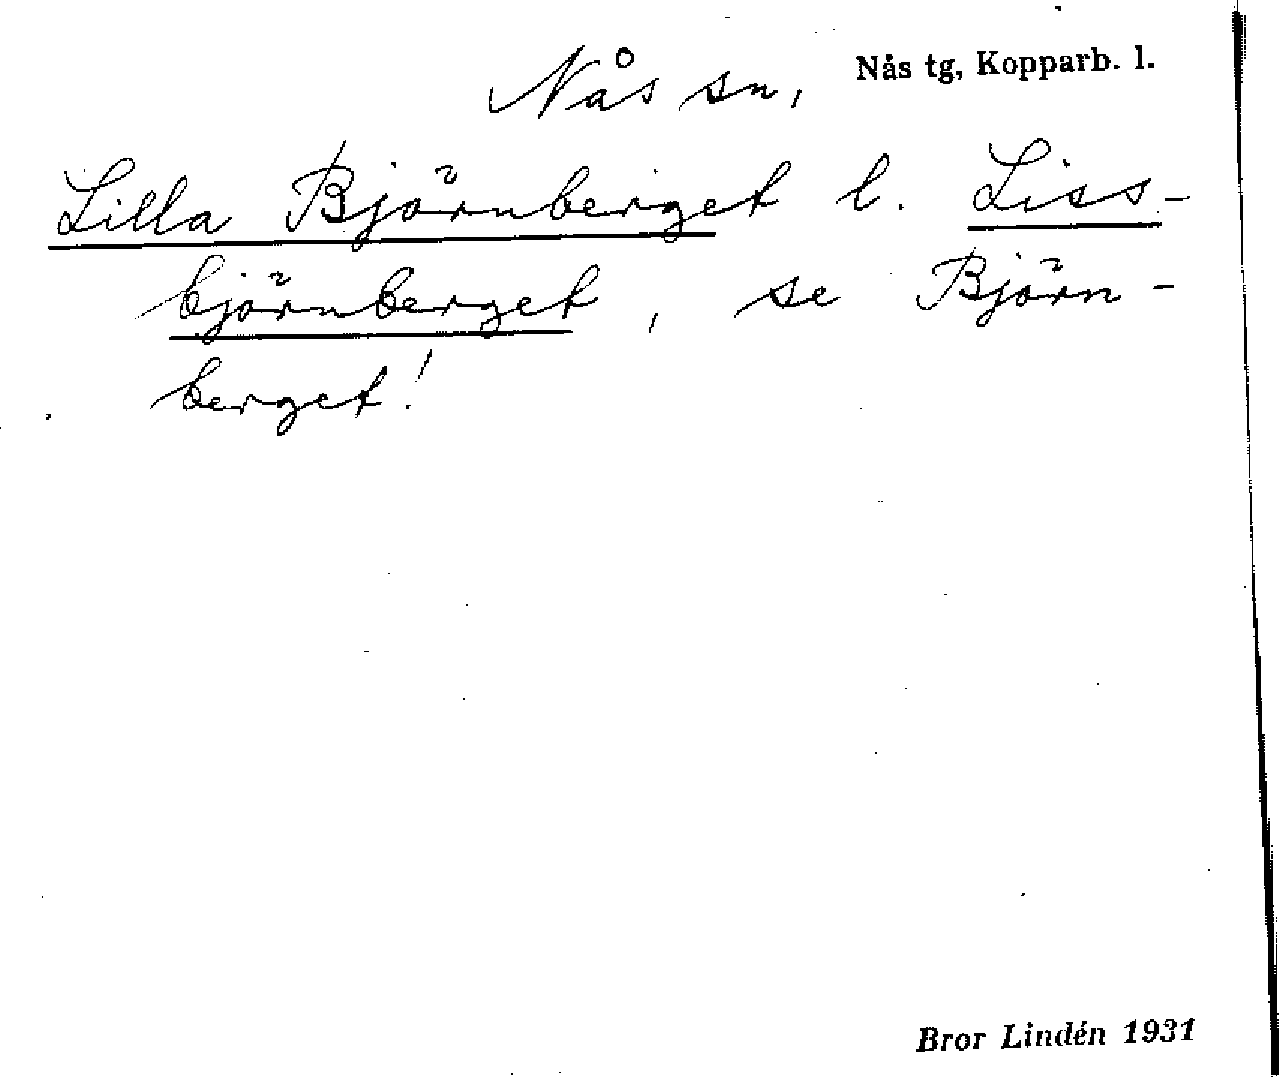 Nås sn, Nås tg, Kopparb. l.
Lilla Björnberget l. Liss-
björnberget, se Björn-
berget!
Bror Lindén 1931